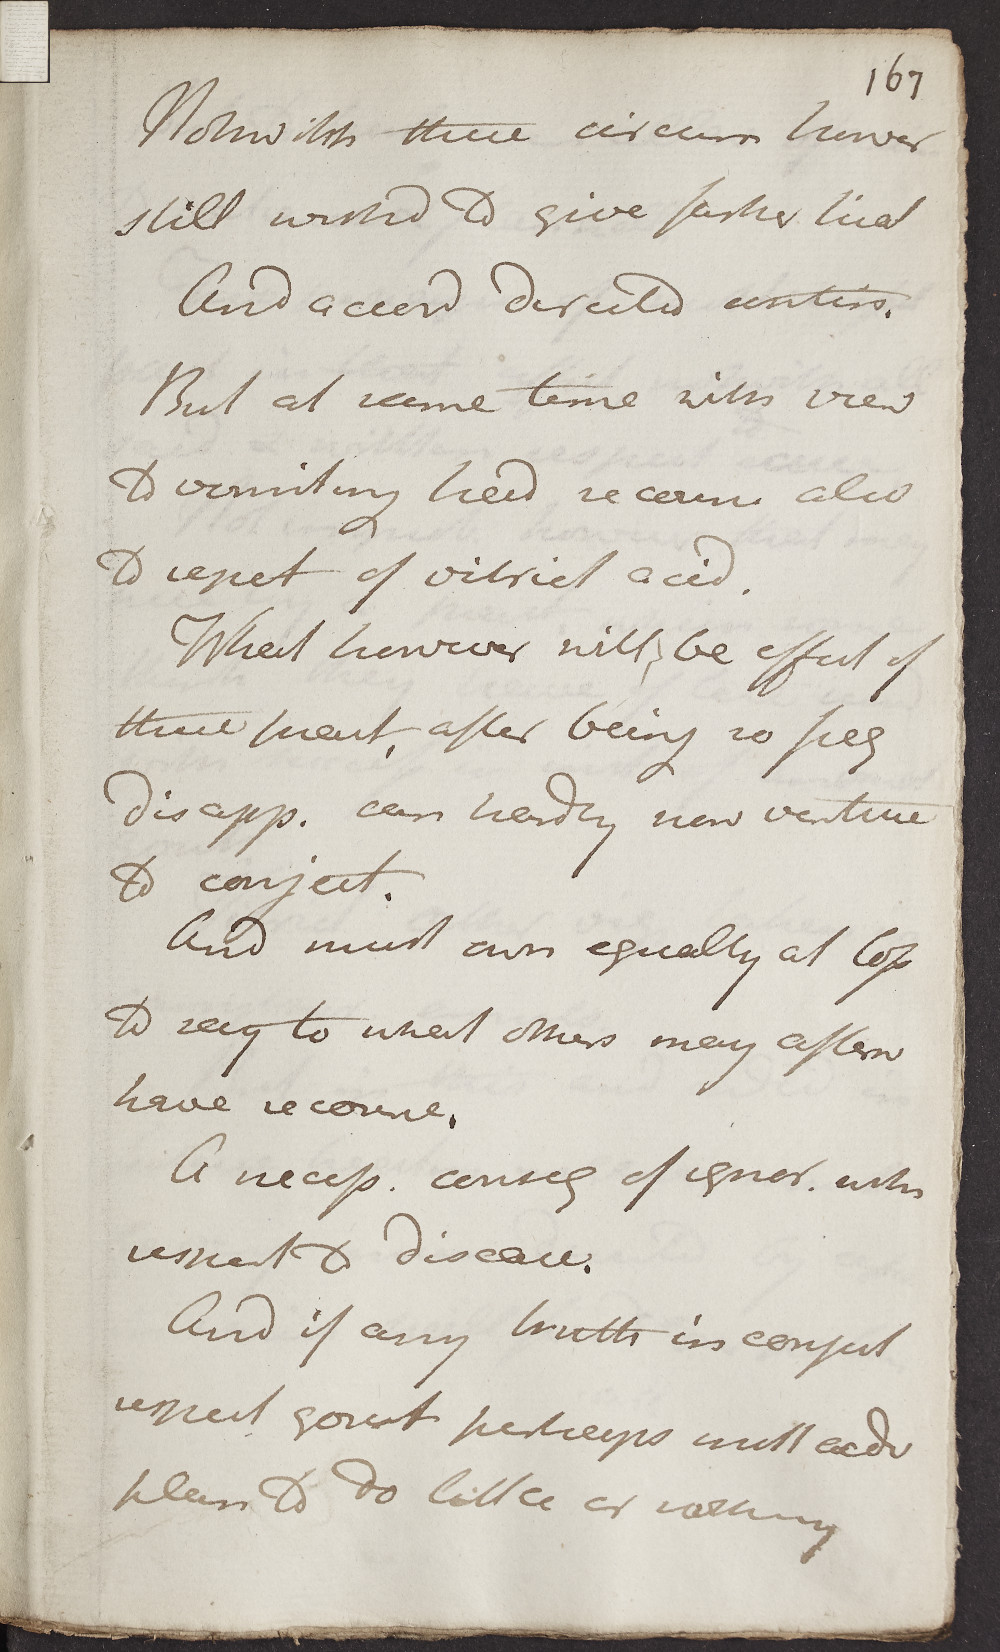 167
Notwithst these circum howev
still wished to give farther trial
And accord directed contin.
But at same time with view
to vomiting had recourse also
to repet of vitriol acid.
What however will be effect of
these pract, after being so freq
disapp. can hardly now venture
to conject.
And must own equally at loss
to say to what others may afterw
have recourse.
A necess. conseq of ignor. with
respect to disease.
And if any truth in conject
respect gout perhaps most adv
plan to do little or nothing